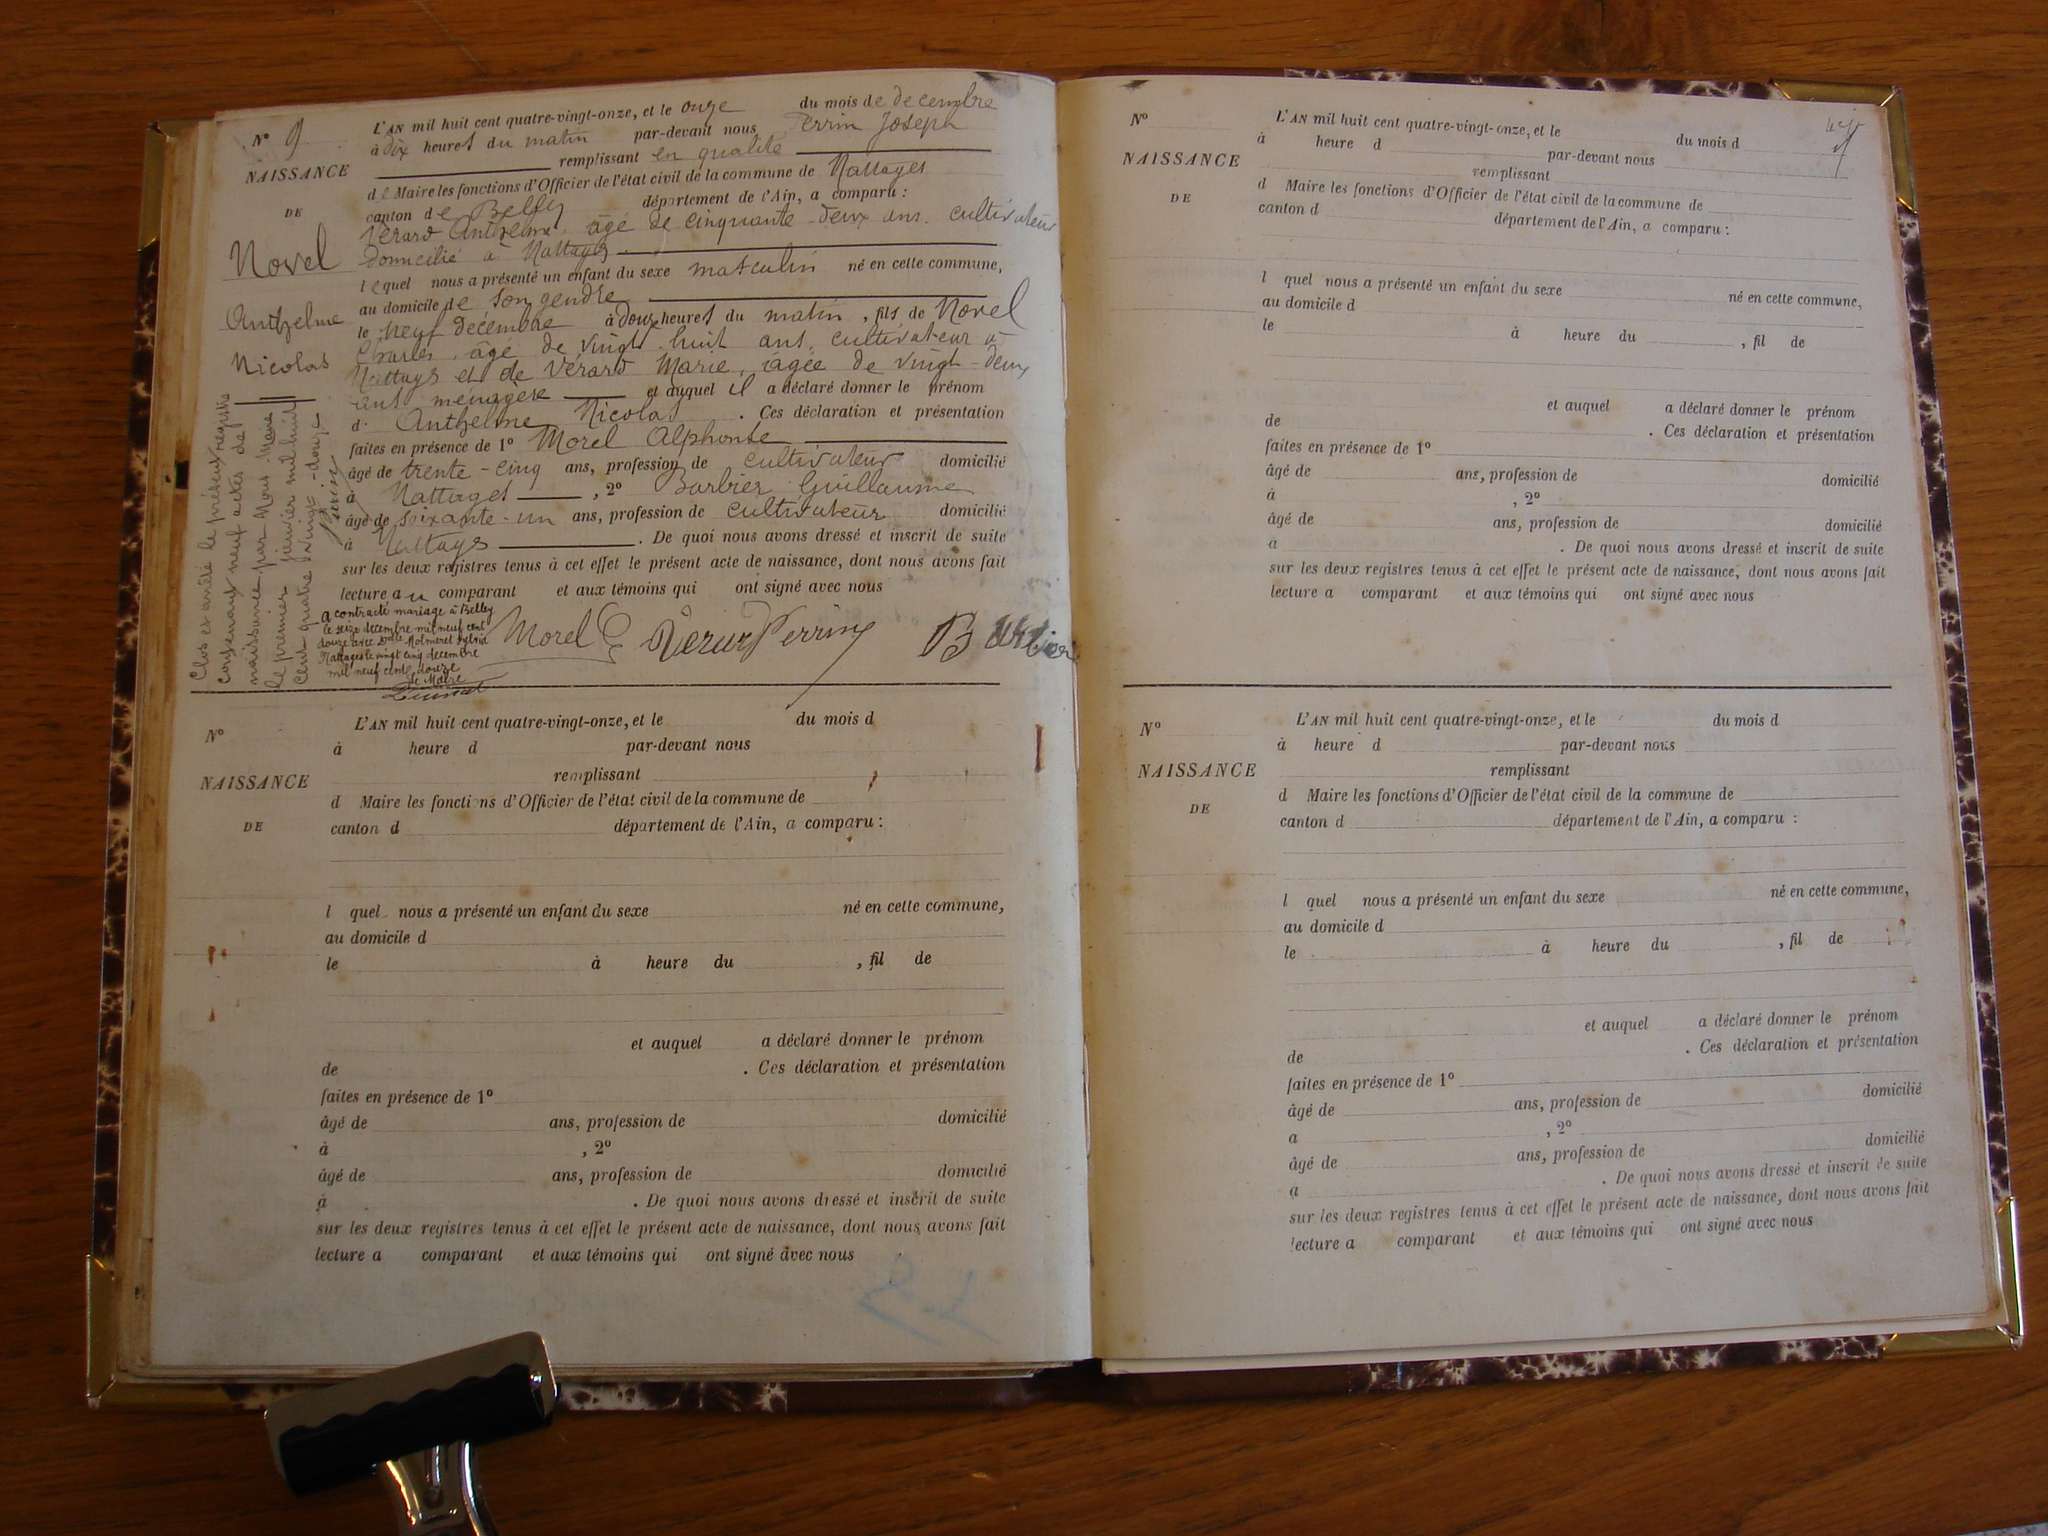 N° 9
NAISSANCE
DE
Novel
Anthelme
Nicolas
L'AN mil huit cent quatre-vingt-onze, et le onze du mois de decembre
à dix heures du matin par-devant nous Perrin Joseph
remplissant en qualité
de Maire les fonctions d'Officier de l'état civil de la commune de Nattages
canton de Belley département de l'Ain, a comparu :
Vérard Anthelme âgé de cinquante-deux ans, cultivateur
domicilié à Nattages
lequel nous a présenté un enfant du sexe masculin né en cette commune,
au domicile de son gendre
le neuf décembre à douze heures du matin, fils de Novel
Charles, âgé de vingt huit ans, cultivateur à
Nattages et de Vérard Marie, âgée de vingt-deux
ans ménagère et auquel il a déclaré donner le prénom
d' Anthelme Nicolas . Ces déclaration et présentation
faites en présence de 1° Morel Alphonse
âgé de trente-cinq ans, profession de cultivateur domicilié
à Nattages , 2° Barbier Guillaume
âgé de soixante-un ans, profession de cultivateur domicilié
à Nattages . De quoi nous avons dressé et inscrit de suite
sur les deux registres tenus à cet effet le présent acte de naissance, dont nous avons fait
lecture au comparant et aux témoins qui ont signé avec nous
Clos et arrêté le présent registre
contenant neuf actes de
naissance par Nous Maire
le premier janvier mil huit
cent quatre vingt-douze
Perrin
a contracté mariage à Belley
le seize decembre mil neuf cent
douze avec
Nattages le vingt cinq decembre
mil neuf cent douze
Le Maire
Morel Verard Perrin Barbier
N°
NAISSANCE
DE
L'AN mil huit cent quatre-vingt-onze, et le du mois d
à heure d par-devant nous
remplissant
d Maire les fonctions d'Officier de l'état civil de la commune de
canton d département de l'Ain, a comparu :
l quel nous a présenté un enfant du sexe né en cette commune,
au domicile d
le à heure du , fil de
et auquel a déclaré donner le prénom
de . Ces déclaration et présentation
faites en présence de 1°
âgé de ans, profession de domicilié
à , 2°
âgé de ans, profession de domicilié
à . De quoi nous avons dressé et inscrit de suite
sur les deux registres tenus à cet effet le présent acte de naissance, dont nous avons fait
lecture a comparant et aux témoins qui ont signé avec nous
N°
NAISSANCE
DE
L'AN mil huit cent quatre-vingt-onze, et le du mois d
à heure d par-devant nous
remplissant
d Maire les fonctions d'Officier de l'état civil de la commune de
canton d département de l'Ain, a comparu :
l quel nous a présenté un enfant du sexe né en cette commune,
au domicile d
le à heure du , fil de
et auquel a déclaré donner le prénom
de . Ces déclaration et présentation
faites en présence de 1°
âgé de ans, profession de domicilié
à , 2°
âgé de ans, profession de domicilié
a . De quoi nous avons dressé et inscrit de suite
sur les deux registres tenus à cet effet le présent acte de naissance, dont nous avons fait
lecture a comparant et aux témoins qui ont signé avec nous
N°
NAISSANCE
DE
L'AN mil huit cent quatre-vingt-onze, et le du mois d
à heure d par-devant nous
remplissant
d Maire les fonctions d'Officier de l'état civil de la commune de
canton d département de l'Ain, a comparu :
l quel nous a présenté un enfant du sexe né en cette commune,
au domicile d
le à heure du , fil de
et auquel a déclaré donner le prénom
de . Ces déclaration et présentation
faites en présence de 1°
âgé de ans, profession de domicilié
a , 2°
âgé de ans, profession de domicilié
a . De quoi nous avons dressé et inscrit de suite
sur les deux registres tenus à cet effet le présent acte de naissance, dont nous avons fait
lecture a comparant et aux témoins qui ont signé avec nous